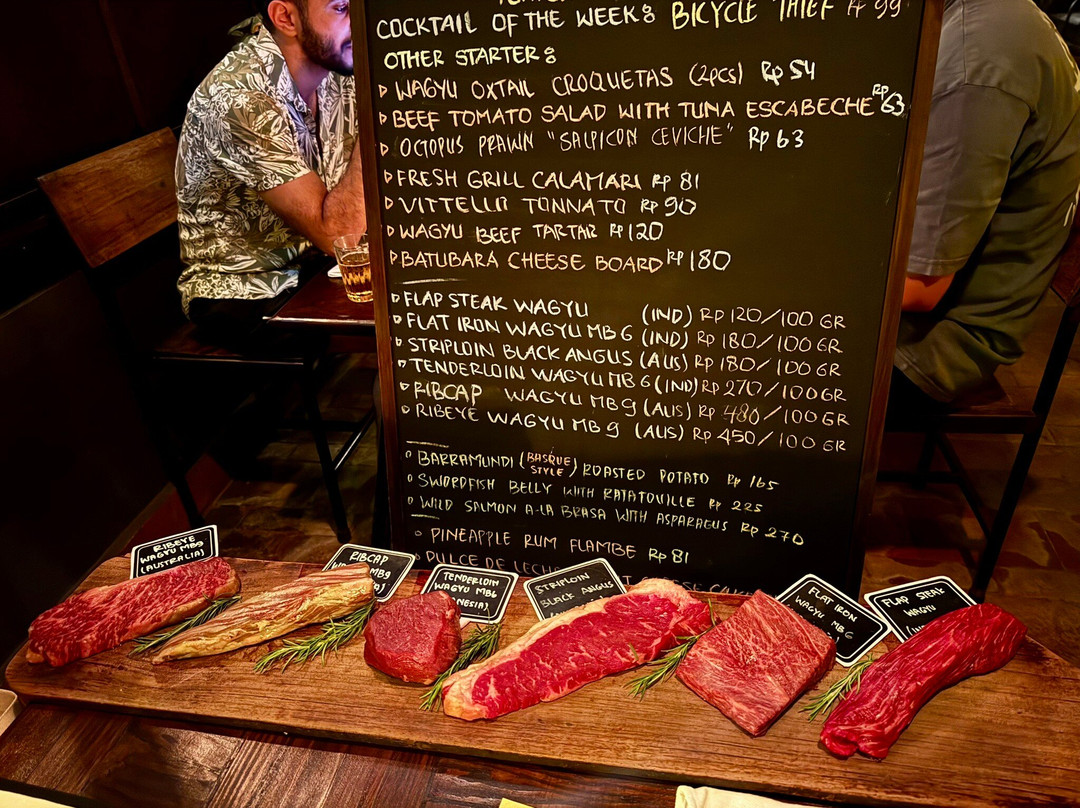 COCKTAIL OF THE WEEK: BICYCLE THIEF Rp 99
OTHER STARTER:
WAGYU OXTAIL CROQUETAS (2pcs) Rp 54
BEEF TOMATO SALAD WITH TUNA ESCABECHE Rp 63
OCTOPUS PRAWN "SALPICON CEVICHE" Rp 63
FRESH GRILL CALAMARI Rp 81
VITTELLO TONNATO Rp 90
WAGYU BEEF TARTAR Rp 120
BATUBARA CHEESE BOARD Rp 180
FLAP STEAK WAGYU (IND) Rp 120/100 GR
FLAT IRON WAGYU MB 6 (IND) Rp 180/100 GR
STRIPLOIN BLACK ANGUS (AUS) Rp 180/100 GR
TENDERLOIN WAGYU MB 6 (IND) Rp 270/100 GR
RIBCAP WAGYU MB 9 (AUS) Rp 480/100 GR
RIBEYE WAGYU MB 9 (AUS) Rp 450/100 GR
BARRAMUNDI (BASQUE STYLE) ROASTED POTATO Rp 165
SWORDFISH BELLY WITH RATATOUILLE Rp 225
WILD SALMON A-LA BRASA WITH ASPARAGUS Rp 270
PINEAPPLE RUM FLAMBE Rp 81
DULCE DE LECHE
RIBEYE
WAGYU MB9
(AUSTRALIA)
RIBCAP
MB9
TENDERLOIN
WAGYU MB6
STRIPLOIN
BLACK ANGUS
FLAT IRON
WAGYU MB 6
FLAP STEAK
WAGYU